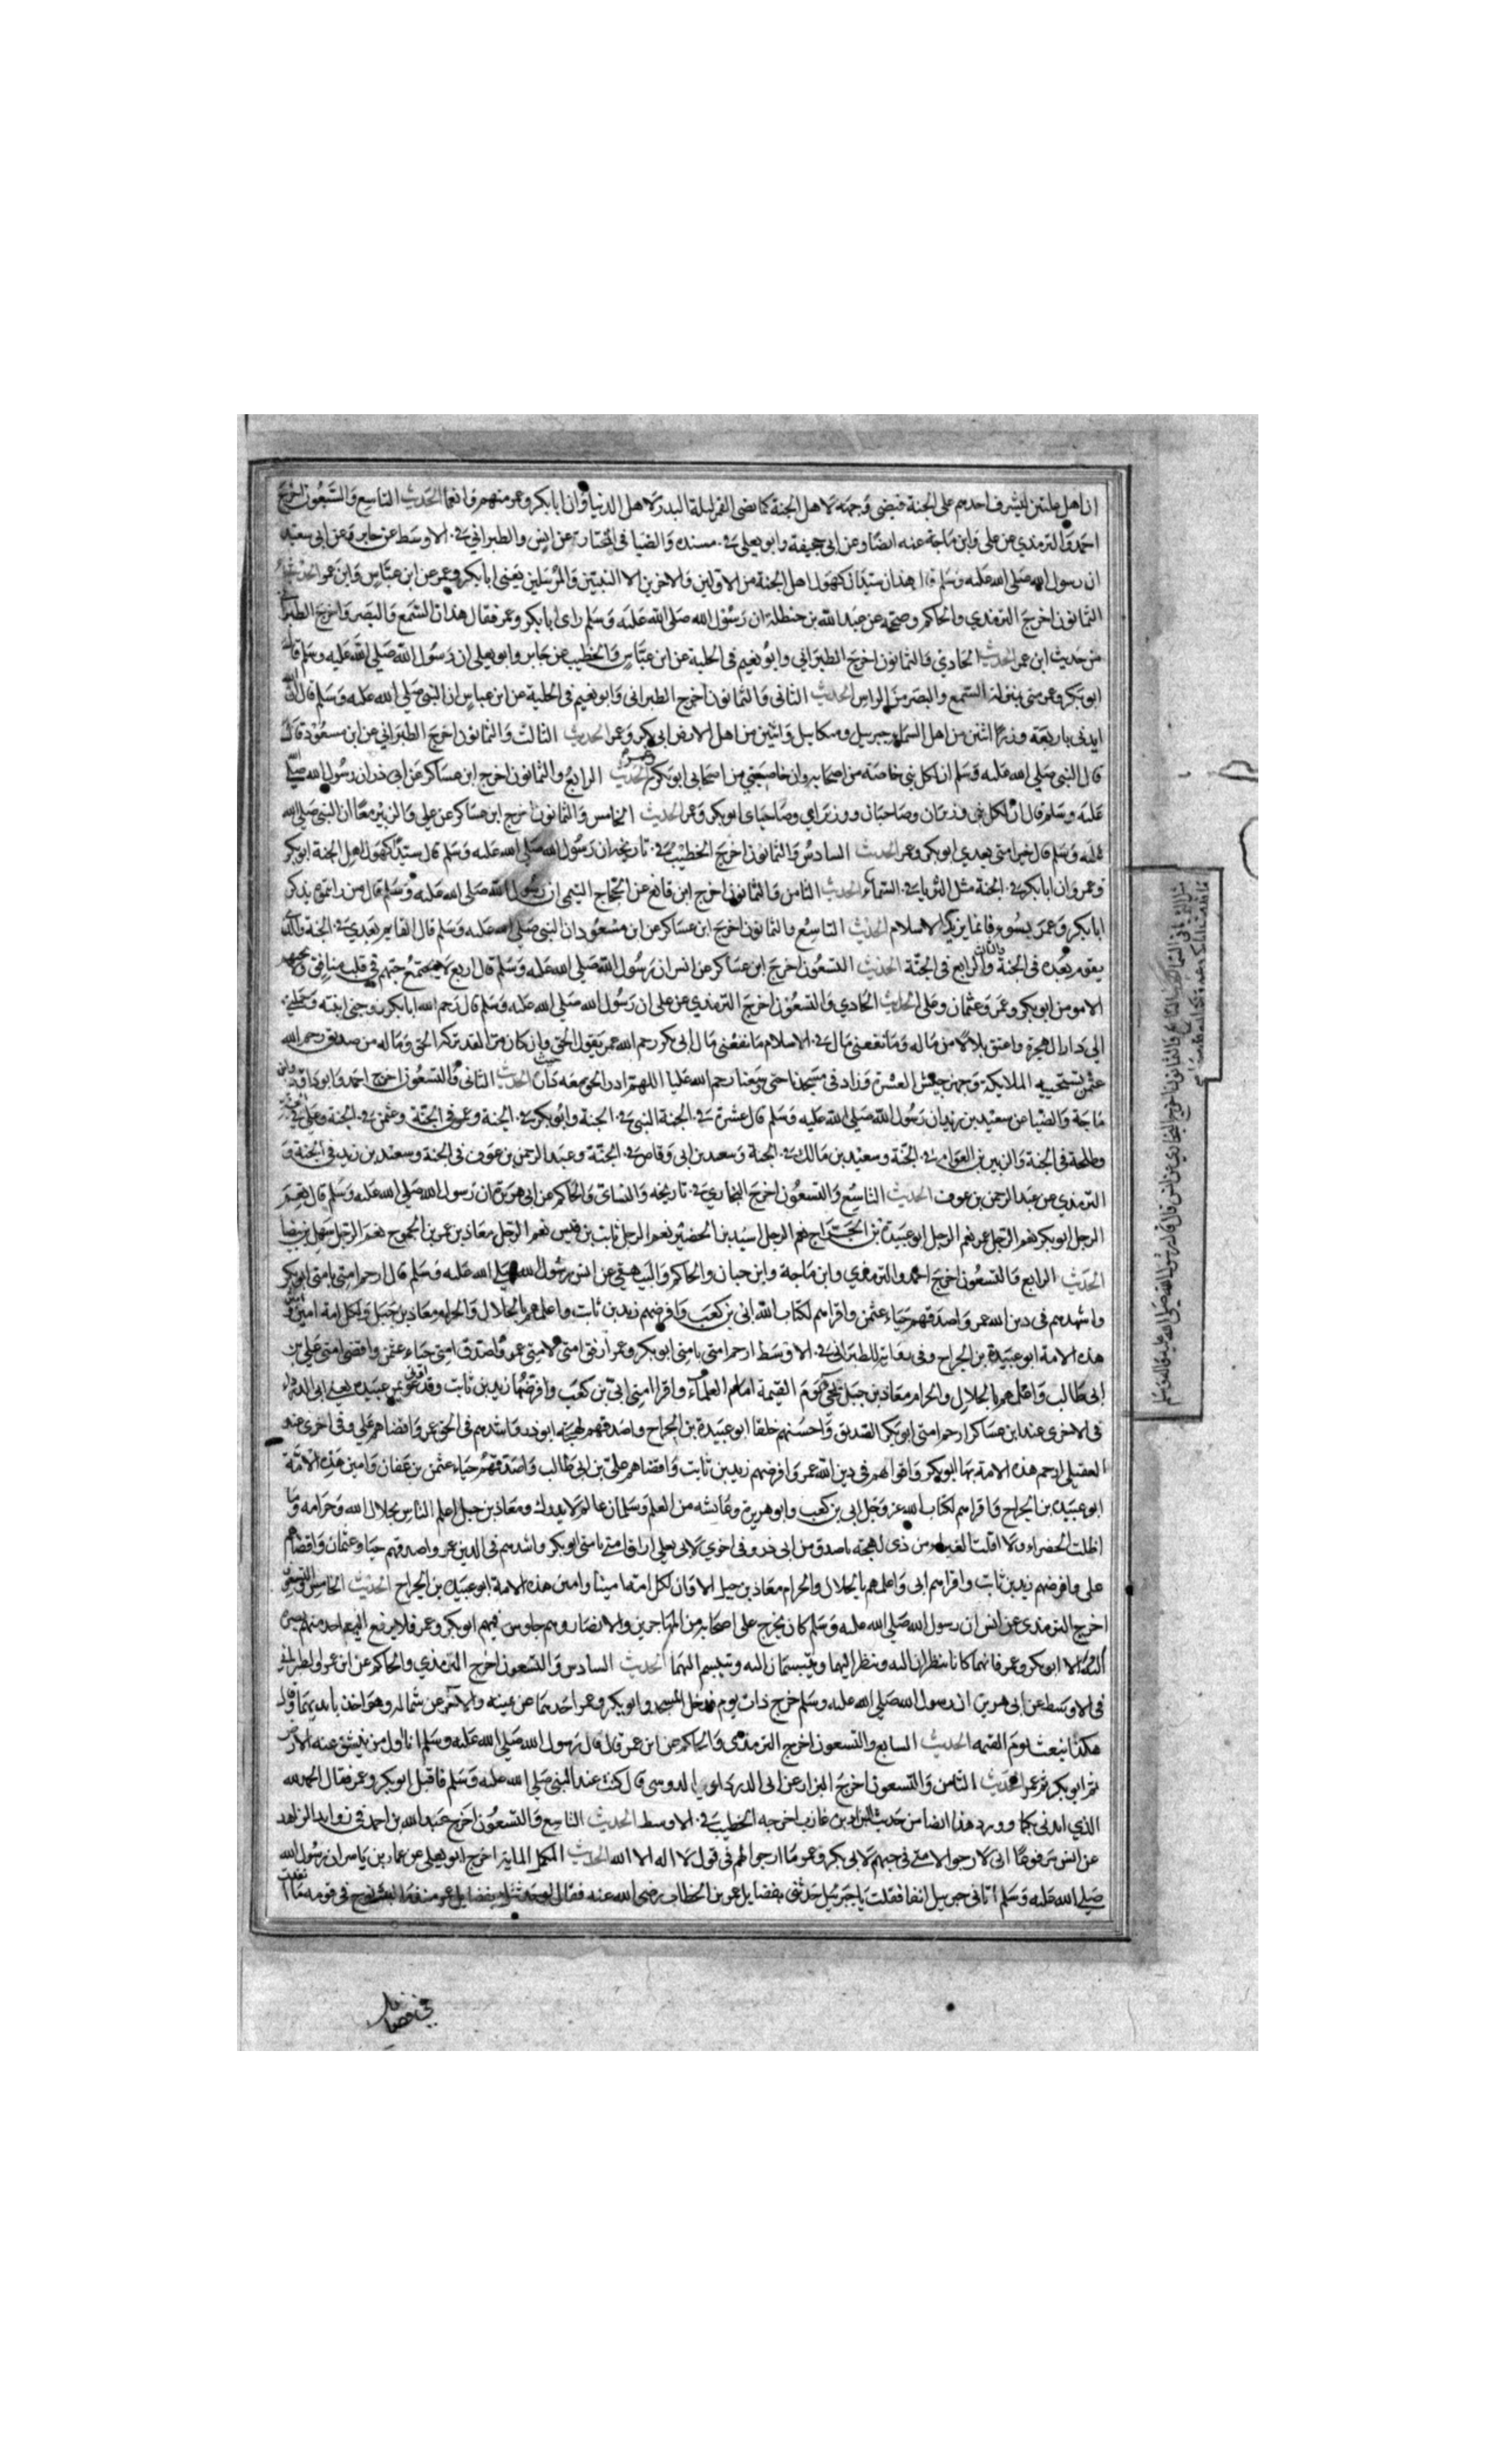 ان اهل عليين ليشرف احدهم على الجنة فيضي وجهه لاهل الجنة كما يضي القمر ليلة البدر لاهل الدنيا وان ابا بكر وعمر منهم وانعما الحديث التاسع والسبعون اخرج
احمد والترمذي عن علي وابن ماجة عنه ايضا وعن ابي جحيفة وابو يعلى في مسنده والضيا في المختارة عن انس والطبراني في الاوسط عن جابر وعن ابي سعيد
ان رسول الله صلى الله عليه وسلم قال هذان سيدا كهول اهل الجنة من الاولين والاخرين الا النبيين والمرسلين يعني ابا بكر وعمر عن ابن عباس وابن عمر الحديث
الثمانون اخرج الترمذي والحاكم وصححه عن عبد الله بن حنطلة ان رسول الله صلى الله عليه وسلم راى ابا بكر وعمر فقال هذان السمع والبصر واخرج الطبراني
من حديث ابن عمر الحديث الحادي والثمانون اخرج الطبراني وابو نعيم في الحلية عن ابن عباس والخطيب عن جابر وابو يعلى ان رسول الله صلى الله عليه وسلم قال
ابو بكر وعمر مني بمنزلة السمع والبصر من الراس الحديث الثاني والثمانون اخرج الطبراني وابو نعيم في الحلية عن ابن عباس ان النبي صلى الله عليه وسلم قال ان الله
ايدني باربعة وزرا اثنين من اهل السماء جبريل وميكاييل واثنين من اهل الارض ابي بكر وعمر الحديث الثالث والثمانون اخرج الطبراني عن ابن مسعود قال
قال النبي صلى الله عليه وسلم ان لكل نبي خاصة من اصحابه وان خاصتي من اصحابي ابو بكر وعمر الحديث الرابع والثمانون اخرج ابن عساكر عن ابي ذر ان رسول الله صلى الله
عليه وسلم قال ان لكل نبي وزيران وصاحبان ووزيراي وصاحباي ابو بكر وعمر الحديث الخامس والثمانون اخرج ابن عساكر عن علي والزبير معا ان النبي صلى الله
عليه وسلم قال خير امتي بعدي ابو بكر وعمر الحديث السادس والثمانون اخرج الخطيب في تاريخه ان رسول الله صلى الله عليه وسلم قال سيدا كهول اهل الجنة ابو بكر
وعمر وان ابا بكر في الجنة مثل الثريا في السماء الحديث الثامن والثمانون اخرج ابن قانع عن الحجاج التيمي ان رسول الله صلى الله عليه وسلم قال من رايتموه يذكر
ابا بكر وعمر بسوء فانما يريد الاسلام الحديث التاسع والثمانون اخرج ابن عساكر عن ابن مسعود ان النبي صلى الله عليه وسلم قال القايم بعدي في الجنة والذي
يقوم بعده في الجنة والثالث والرابع في الجنة الحديث التسعون اخرج ابن عساكر عن انس ان رسول الله صلى الله عليه وسلم قال اربع لا يجتمع حبهم في قلب منافق ولا يحبهم
الا مومن ابو بكر وعمر وعثمان وعلي الحديث الحادي والتسعون اخرج الترمذي عن علي ان رسول الله صلى الله عليه وسلم قال رحم الله ابا بكر زوجني ابنته وحملني
الى دار الهجرة واعتق بلالا من ماله وما نفعني مال في الاسلام ما نفعني مال ابي بكر رحم الله عمر يقول الحق وان كان مرا لقد تركه الحق وما له من صديق رحم الله
عثمن تستحييه الملايكة وجهز جيش العسرة وزاد في مسجدنا حتى وسعنا رحم الله عليا اللهم ادر الحق معه حيث دار الحديث الثاني والتسعون اخرج احمد وابو داود وابن
ماجة والضيا عن سعيد بن زيد ان رسول الله صلى الله عليه وسلم قال عشرة في الجنة النبي في الجنة وابو بكر في الجنة وعمر في الجنة وعثمن في الجنة وعلي في
وطلحة في الجنة والزبير بن العوام في الجنة وسعيد بن مالك في الجنة وسعد بن ابي وقاص في الجنة وعبد الرحمن بن عوف في الجنة وسعيد بن زيد في الجنة و
الترمذي عن عبد الرحمن بن عوف الحديث التاسع والتسعون اخرج البخاري في تاريخه والنسائي والحاكم عن ابي هريرة ان رسول الله صلى الله عليه وسلم قال نعم
الرجل ابو بكر نعم الرجل عمر نعم الرجل ابو عبيدة بن الجراح نعم الرجل اسيد بن الحضير نعم الرجل ثابت بن قيس نعم الرجل معاذ بن عمرو بن الجموح نعم الرجل سهيل بن بيضا
الحديث الرابع والتسعون اخرج احمد والترمذي وابن ماجة وابن حبان والحاكم والبيهقي عن انس رسول الله صلى الله عليه وسلم قال ارحم امتي بامتي ابو بكر
واشدهم في دين الله عمر واصدقهم حياء عثمن واقراهم لكتاب الله ابي بن كعب وافرضهم زيد بن ثابت واعلمهم بالحلال والحرام معاذ بن جبل ولكل امة امين وامين
هذه الامة ابو عبيدة بن الجراح وفي رواية للطبراني في الاوسط ارحم امتي بامتي ابو بكر وعمر ارفق امتي لامتي عمر واصدق امتي حياء عثمن واقضى امتي علي بن
ابي طالب واعلمهم بالحلال والحرام معاذ بن جبل يجي يوم القيمة امام العلماء واقرا امتي ابي بن كعب وافرضها زيد بن ثابت وقد اوتي عويمر عبيدة يعني ابي الدرداء
في الاخرى عند ابن عساكر ارحم امتي ابو بكر الصديق واحسنهم خلقا ابو عبيدة بن الجراح واصدقهم لهجة ابو ذر واشدهم في الحق عمر واقضاهم علي وفي اخرى عند
العقيلي ارحم هذه الامة بها ابو بكر واقواهم في دين الله عمر وافرضهم زيد بن ثابت واقضاهم علي بن ابي طالب واصدقهم حياء عثمن بن عفان وامين هذه الامة
ابو عبيدة بن الجراح واقراهم لكتاب الله عز وجل ابي بن كعب وابو هريرة وعايشه من العلم وسلمان عالم لا يدرك ومعاذ بن جبل اعلم الناس بحلال الله وحرامه وما
اظلت الخضراء ولا اقلت الغبراء من ذي لهجة باصدق من ابي ذر وفي اخرى لابي يعلى اراف امتي بامتي ابو بكر واشدهم في الدين عمر واصدقهم حيا وعثمان واقضاهم
علي وافرضهم زيد بن ثابت واقراهم ابي واعلمهم بالحلال والحرام معاذ بن جبل الا وان لكل امة امينا وامين هذه الامة ابو عبيدة بن الجراح الحديث الخامس والتسعون
اخرج الترمذي عن انس ان رسول الله صلى الله عليه وسلم كان يخرج على اصحابه من المهاجرين والانصار وهم جلوس فيهم ابو بكر وعمر فلا يرفع اليه احد منهم
الا ابو بكر وعمر فانهما كانا ينظران اليه وينظر اليهما ويتبسمان اليه ويتبسم اليهما الحديث السادس والتسعون اخرج الترمذي والحاكم عن ابن عمر والطبراني
في الاوسط عن ابي هريرة ان رسول الله صلى الله عليه وسلم خرج ذات يوم فدخل المسجد وابو بكر وعمر احدهما عن يمينه والاخر عن شماله وهو اخذ بايديهما وقال
هكذا نبعث يوم القيمه الحديث السابع والتسعون اخرج الترمذي والحاكم عن ابن عمر قال قال رسول الله صلى الله عليه وسلم انا اول من تنشق عنه الارض
ثم ابو بكر ثم عمر الحديث الثامن والتسعون اخرج البزار عن ابي الدوسي قال كنت عند النبي صلى الله عليه وسلم فاقبل ابو بكر وعمر فقال الحمد لله
الذي ايدني بكما وورد هذا ايضا من حديث البراء بن عازب اخرجه الخطيب في الاوسط الحديث التاسع والتسعون اخرج عبد الله بن احمد في زوايد الزاهد
عن انس مرفوعا اني لارجو لامتي في حبهم لابي بكر وعمر ما ارجوا لهم في قول لا اله الا الله الحديث المكمل الماية اخرج ابو يعلى عن عمار بن ياسر ان رسول الله
صلى الله عليه وسلم اتاني جبريل انفا فقلت يا جبرئيل حدثني بفضايل عمر بن الخطاب رضي الله عنه فقال لو حدثتك بفضايل عمر منذ ما لبث نوح في قومه ما نفدت
في فضايل